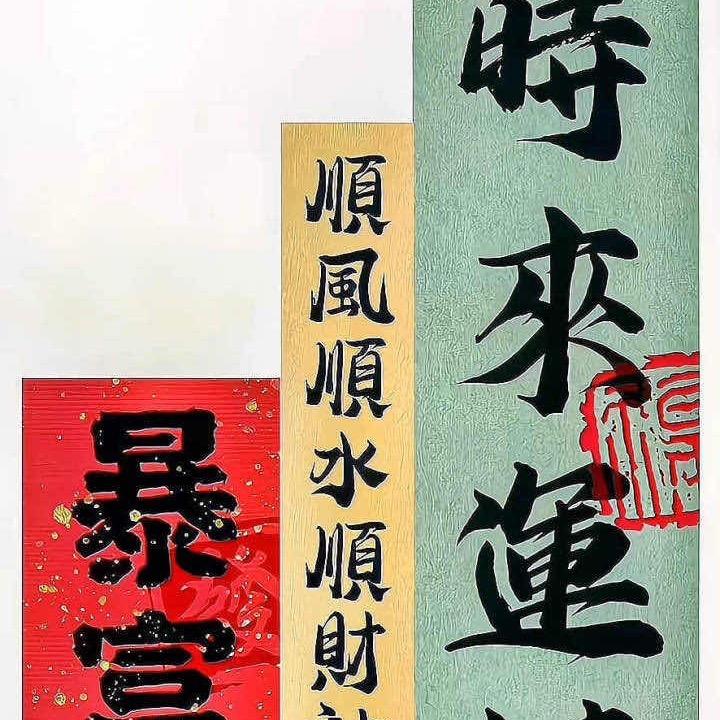 時來運
福
順風順水順財
暴富